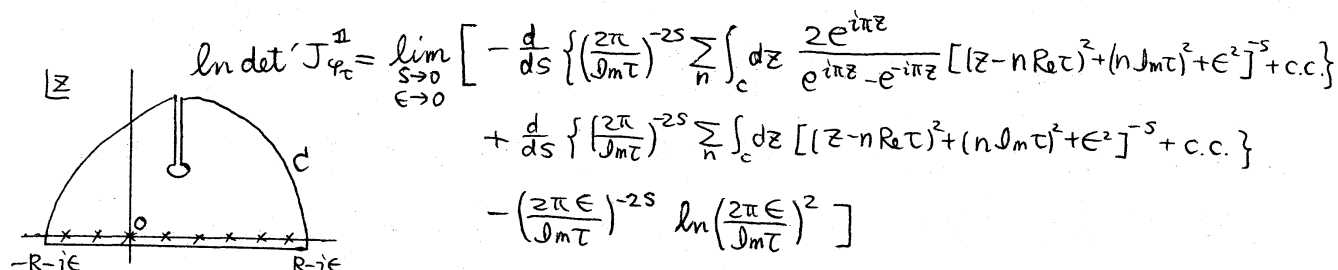 ln det′ J^𝟙_{φ_τ} = lim_{s→0, ε→0} [ − d/ds { (2π/Imτ)^{-2s} Σ_n ∫_c dz 2e^{iπz}/(e^{iπz} − e^{-iπz}) [(z − n Re τ)² + (n Imτ)² + ε²]^{-s} + c.c. }
+ d/ds { (2π/Imτ)^{-2s} Σ_n ∫_c dz [(z − n Re τ)² + (n Imτ)² + ε²]^{-s} + c.c. }
− (2πε/Imτ)^{-2s} ln(2πε/Imτ)² ]
z
C
0
−R−iε R−iε